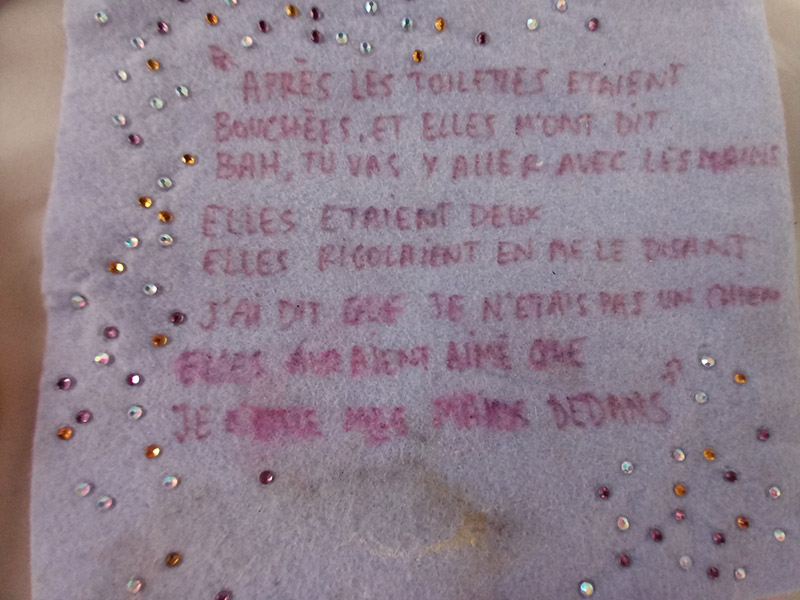 "APRÈS LES TOILETTES ETAIENT
BOUCHÉES, ET ELLES M'ONT DIT
BAH, TU VAS Y ALLER AVEC LES MAINS
ELLES ETAIENT DEUX
ELLES RIGOLAIENT EN ME LE DISANT
J'AI DIT QUE JE N'ETAIS PAS UN CHIEN
ELLES AURAIENT AIMÉ QUE
JE METTE MES MAINS DEDANS"